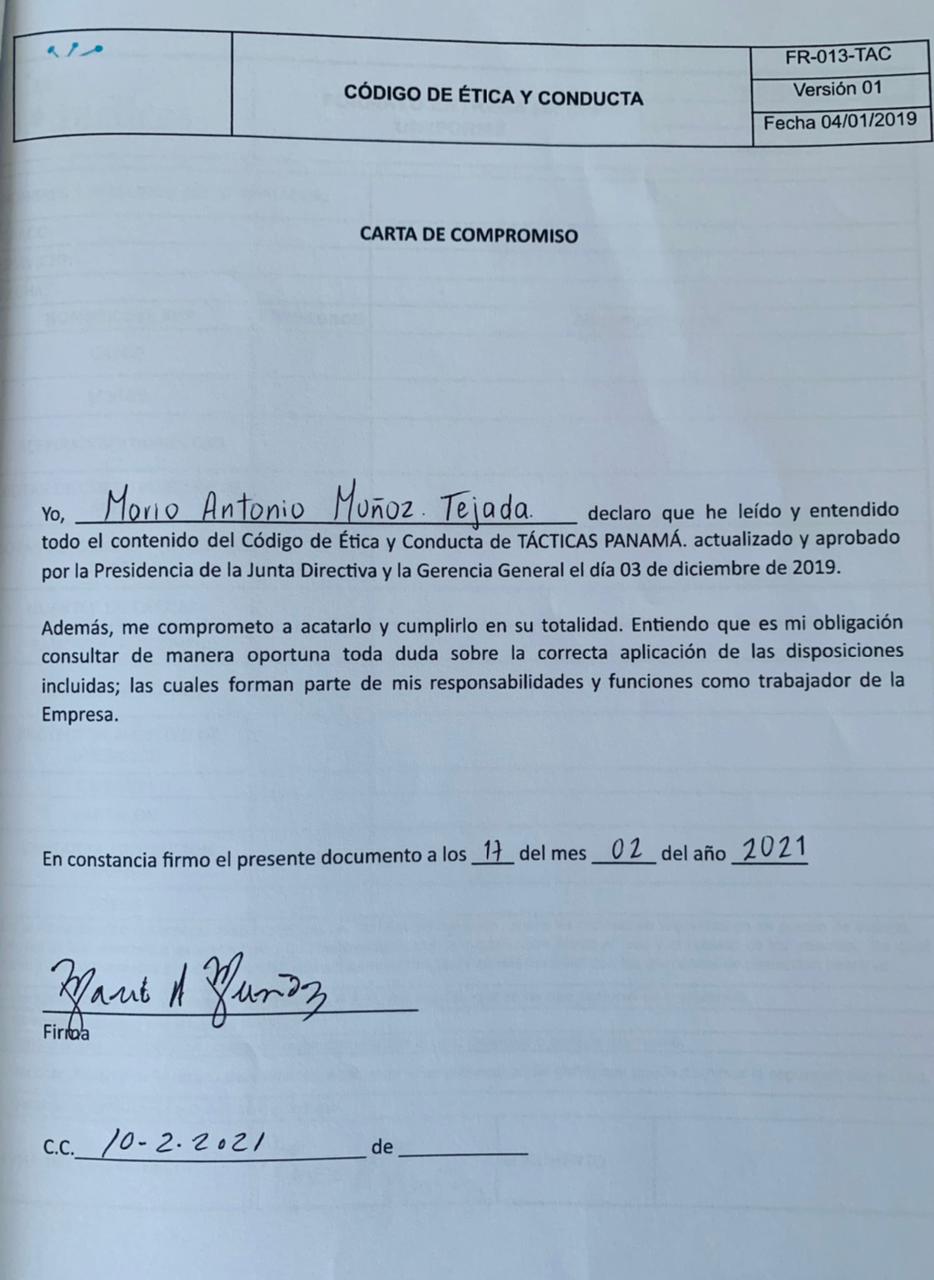 CÓDIGO DE ÉTICA Y CONDUCTA
FR-013-TAC
Versión 01
Fecha 04/01/2019
CARTA DE COMPROMISO
Yo, Mario Antonio Muñoz. Tejada. declaro que he leído y entendido
todo el contenido del Código de Ética y Conducta de TÁCTICAS PANAMÁ. actualizado y aprobado
por la Presidencia de la Junta Directiva y la Gerencia General el día 03 de diciembre de 2019.
Además, me comprometo a acatarlo y cumplirlo en su totalidad. Entiendo que es mi obligación
consultar de manera oportuna toda duda sobre la correcta aplicación de las disposiciones
incluidas; las cuales forman parte de mis responsabilidades y funciones como trabajador de la
Empresa.
En constancia firmo el presente documento a los 17 del mes 02 del año 2021
A Muñoz
Firma
C.C. 10-2.2021 de